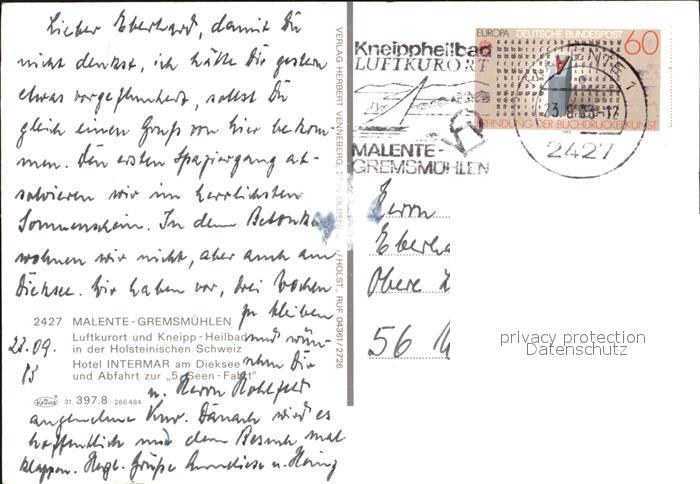 Lieber Eberhard, damit Du
nicht denkst, ich hätte Dir gestern
etwas vorgeflunkert, sollst Du
gleich einen Gruß von hier bekom-
men. Den ersten Spaziergang ab-
solvieren wir im herrlichsten
Sonnenschein. In dem Betonka
wohnen wir nicht, aber auch am
Dieksee. Wir haben vor, drei Wochen
zu bleiben
und wün-
schen Dir
u. Herrn Kohlfeld
angenehme Kur. Danach wird es
hoffentlich mit dem Besuch mal
klappen. Herzl. Grüße Anneliese u. Heinz
23.09.
83
2427 MALENTE-GREMSMÜHLEN
Luftkurort und Kneipp-Heilbad
in der Holsteinischen Schweiz
Hotel INTERMAR am Dieksee
und Abfahrt zur „5-Seen-Fahrt"
Krüger 31. 397.8 266484
VERLAG HERBERT VENNEBERG, OLDENB /HOLST., RUF 04361/2726
Kneippheilbad
LUFTKURORT
MALENTE-
GREMSMÜHLEN
EUROPA DEUTSCHE BUNDESPOST 60
ERFINDUNG DER BUCHDRUCKERKUNST
MALENTE 1
23.9.83-12
2427
Herrn
Eberha
Obere
56
privacy protection
Datenschutz